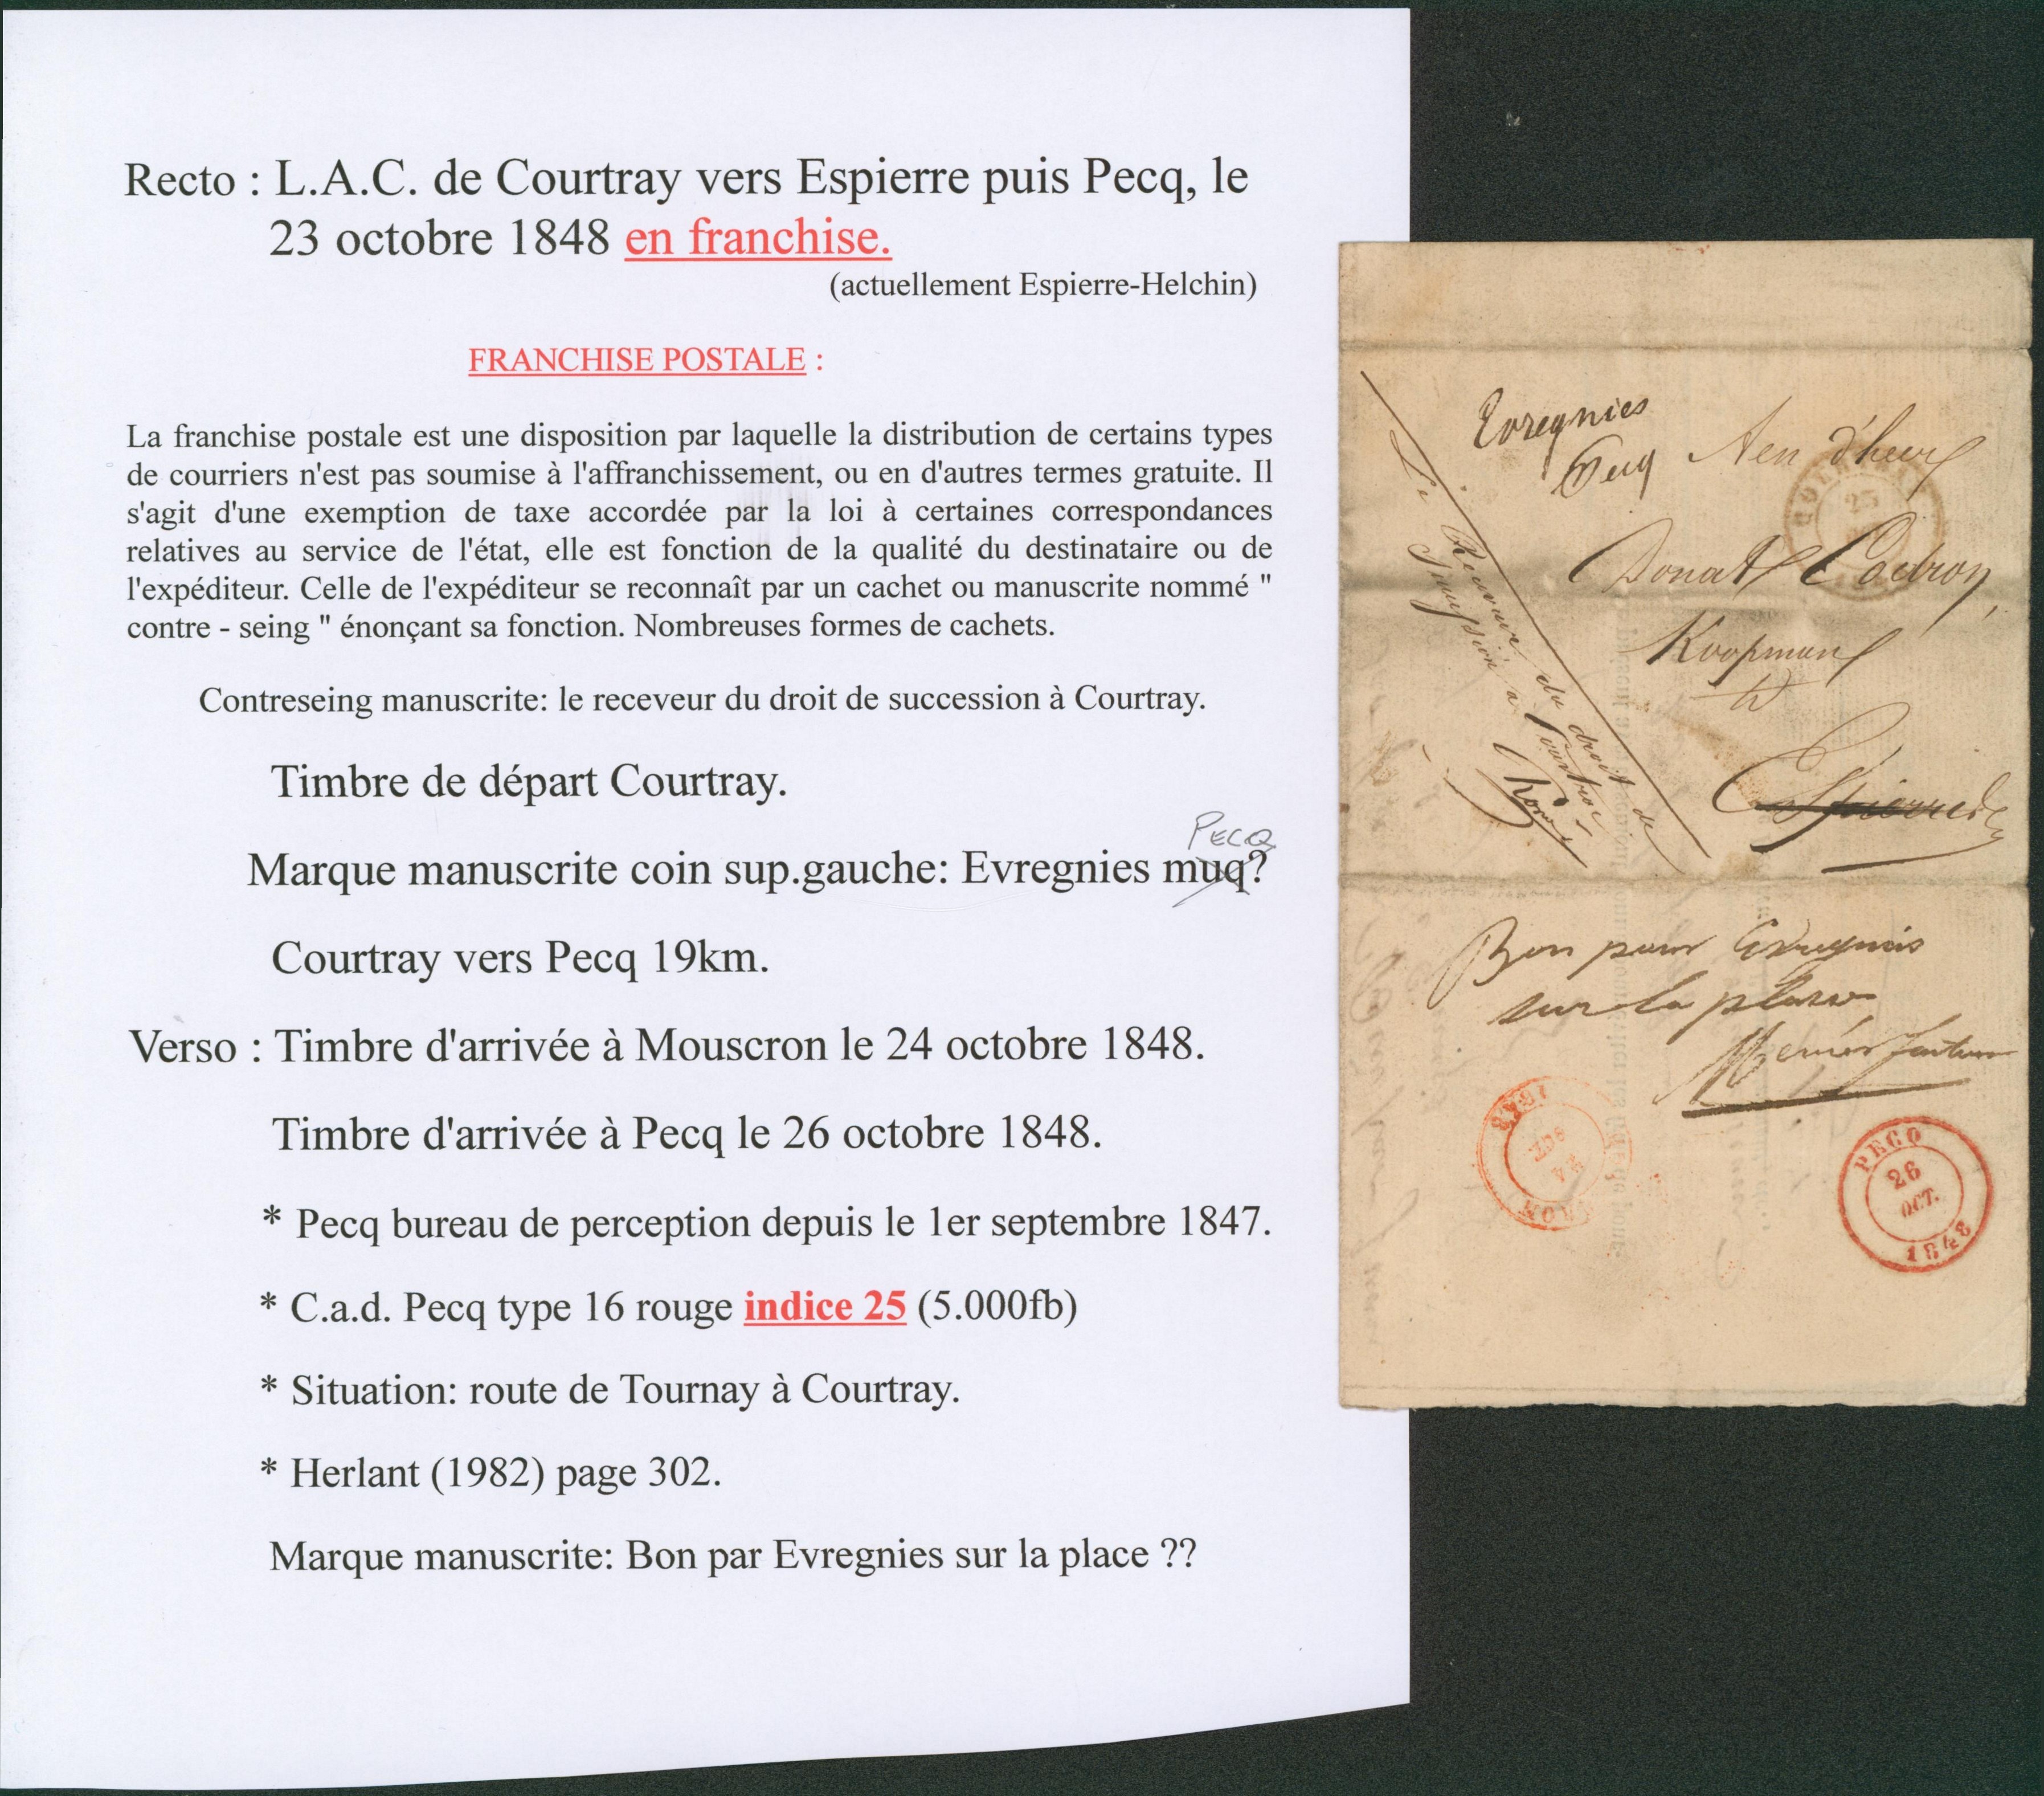 Recto : L.A.C. de Courtray vers Espierre puis Pecq, le
23 octobre 1848 en franchise.
(actuellement Espierre-Helchin)
FRANCHISE POSTALE :
La franchise postale est une disposition par laquelle la distribution de certains types
de courriers n'est pas soumise à l'affranchissement, ou en d'autres termes gratuite. Il
s'agit d'une exemption de taxe accordée par la loi à certaines correspondances
relatives au service de l'état, elle est fonction de la qualité du destinataire ou de
l'expéditeur. Celle de l'expéditeur se reconnaît par un cachet ou manuscrite nommé "
contre - seing " énonçant sa fonction. Nombreuses formes de cachets.
Contreseing manuscrite: le receveur du droit de succession à Courtray.
Timbre de départ Courtray.
PECQ
Marque manuscrite coin sup.gauche: Evregnies muq?
Courtray vers Pecq 19km.
Verso : Timbre d'arrivée à Mouscron le 24 octobre 1848.
Timbre d'arrivée à Pecq le 26 octobre 1848.
* Pecq bureau de perception depuis le 1er septembre 1847.
* C.a.d. Pecq type 16 rouge indice 25 (5.000fb)
* Situation: route de Tournay à Courtray.
* Herlant (1982) page 302.
Marque manuscrite: Bon par Evregnies sur la place ??
Evregnies
Pecq
Aen d'heer
Donat
Koopman
te
Espierre
Le Receveur du droit de
Succession à Courtrai
Bon pour Evregnies
sur la place
facteur
1848
24
OCT
PECQ
26
OCT.
1848